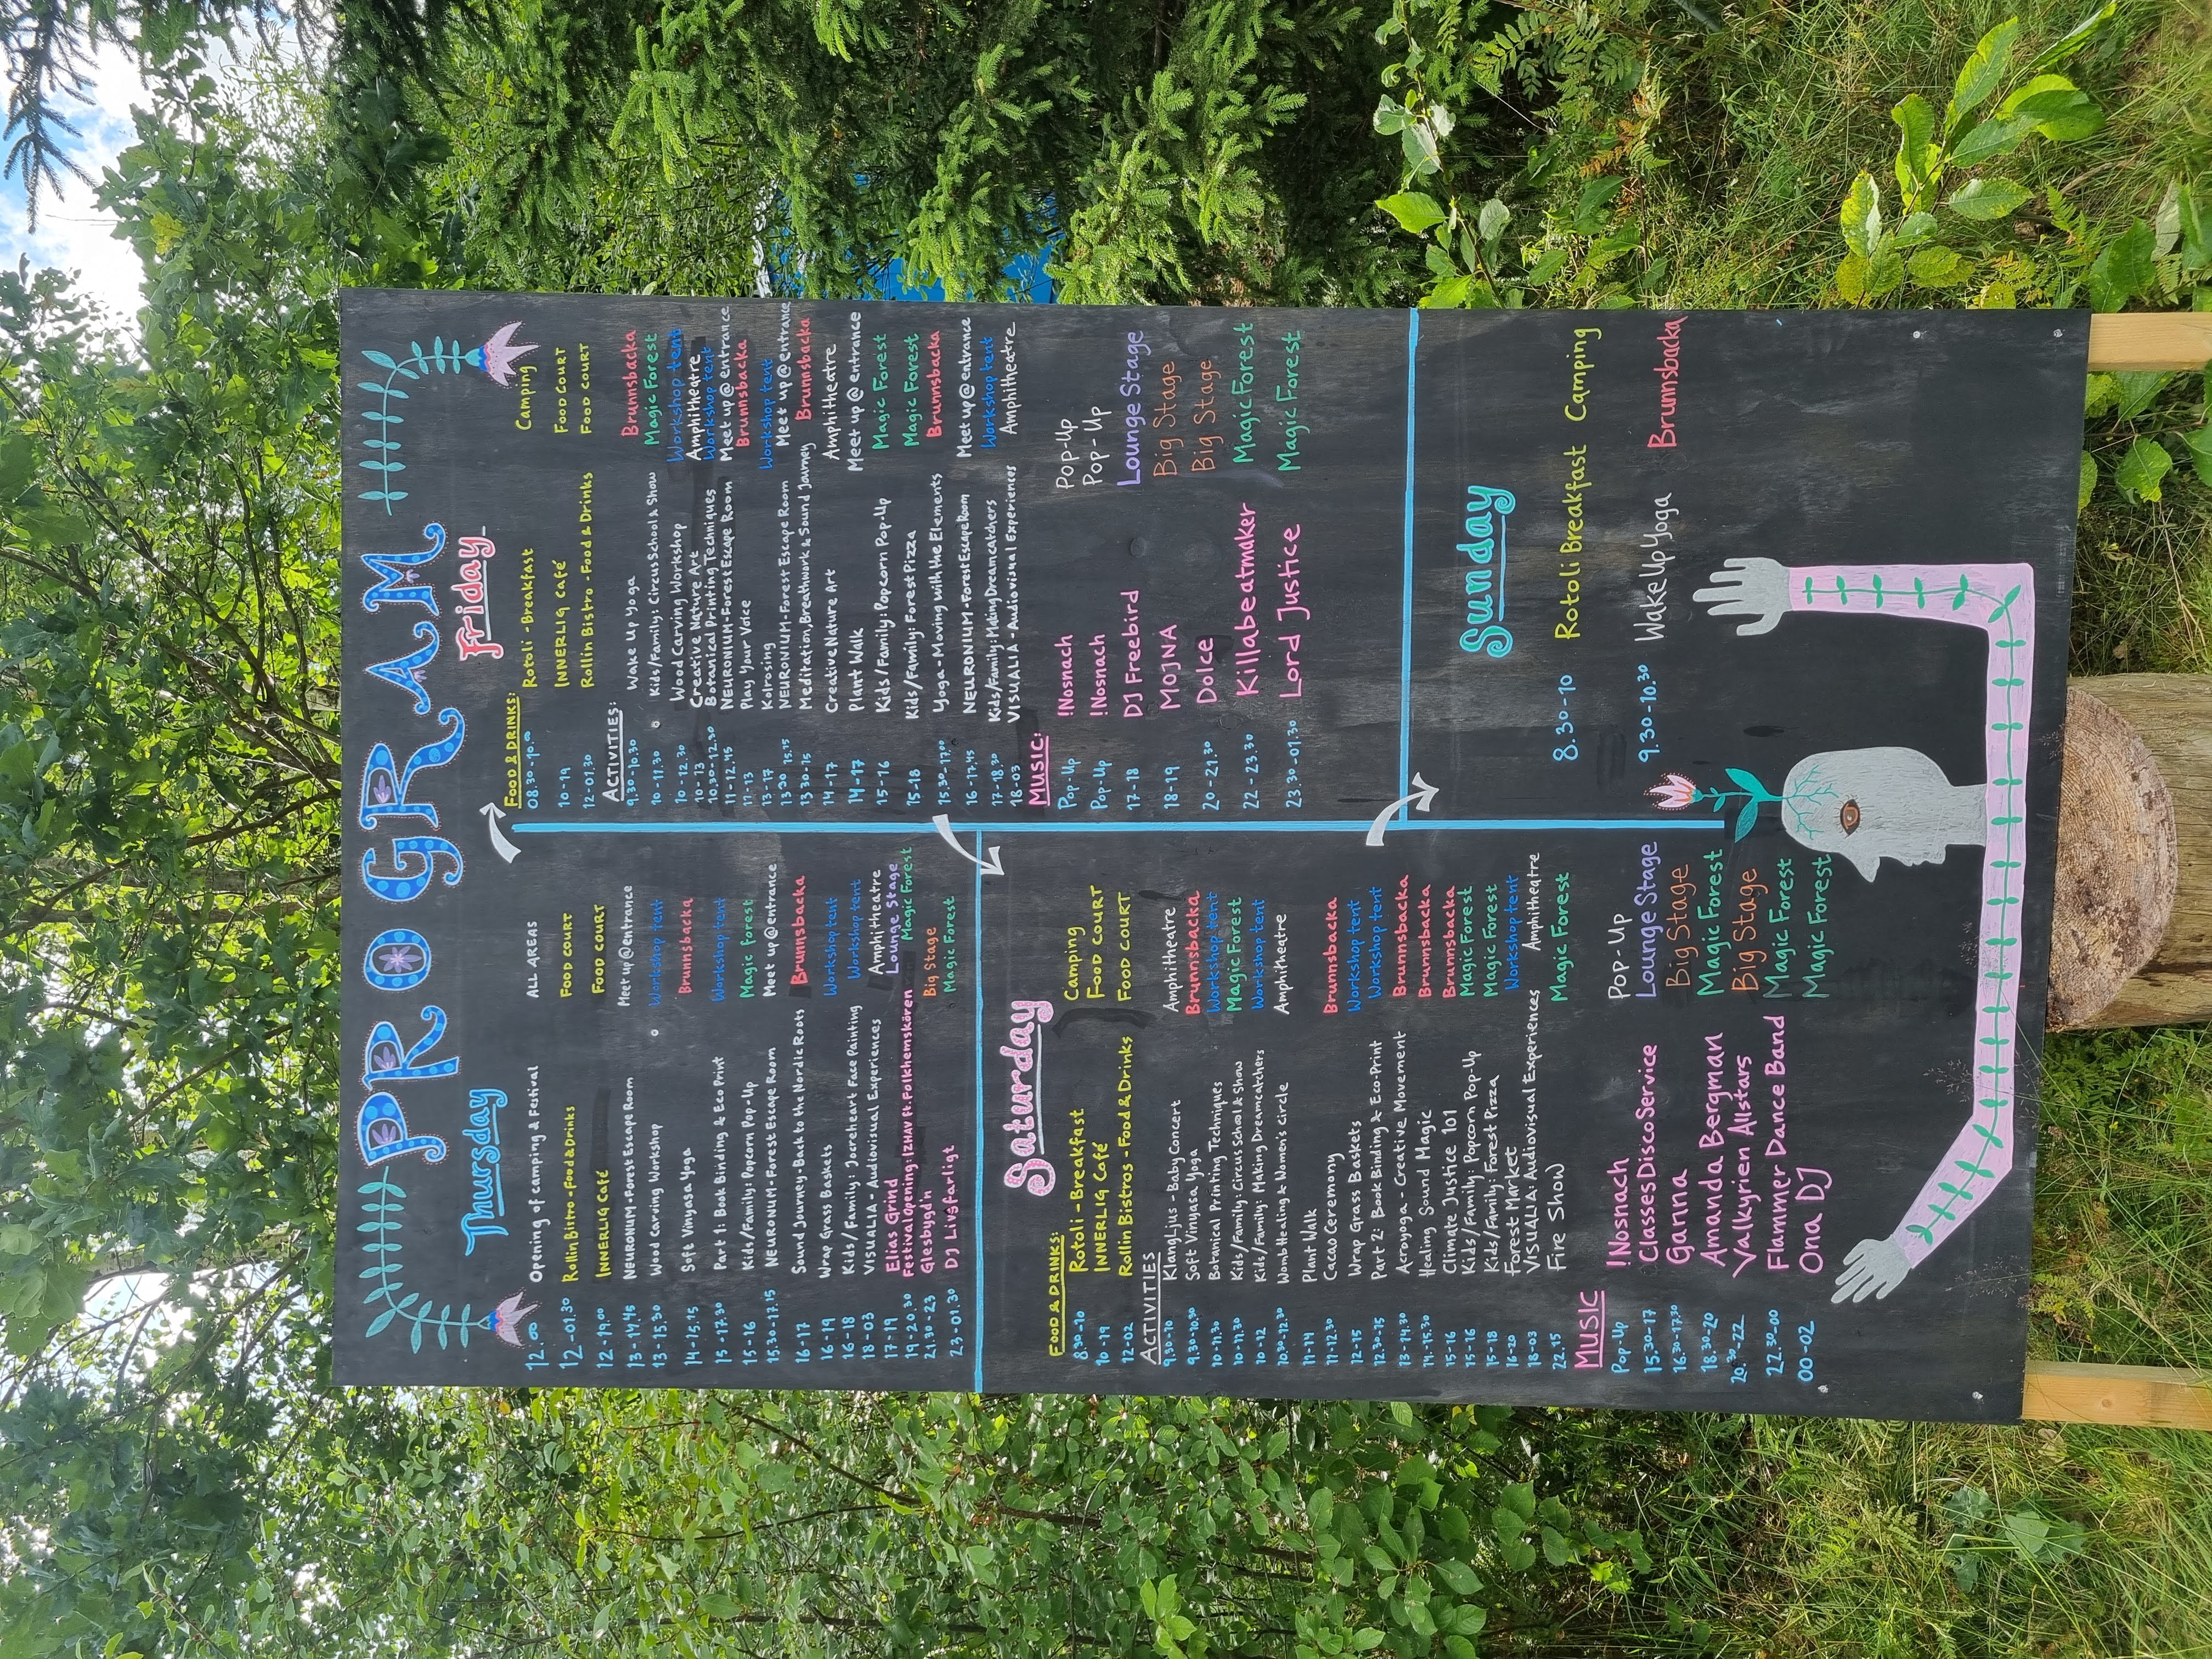 PROGRAM
Thursday
12.00 Opening of camping & Festival ALL AREAS
12-01.30 Rollin Bistro - Food & Drinks FOOD COURT
12-19.00 INNERLIG Café FOOD COURT
13-14.45 NEURONUM - Forest Escape Room Meet up @ entrance
13-15.30 Wood Carving Workshop Workshop tent
14-15.15 Soft Vinyasa Yoga Brunnsbacka
15-17.30 Part 1: Book Binding & Eco Print Workshop tent
15-16 Kids/Family: Popcorn Pop-Up Magic forest
15.30-17.15 NEURONUM - Forest Escape Room Meet up @ entrance
16-17 Sound Journey - Back to the Nordic Roots Brunnsbacka
16-19 Wrap Grass Baskets Workshop tent
16-18 Kids/Family: Jocreheart Face Painting Workshop tent
18-03 VISUALIA - Audiovisual Experiences Amphitheatre
17-19 Elias Grind Lounge Stage
19-20.30 Festival Opening: IZHAV ft. Folkhemskören Magic Forest
21.30-23 Glesbygd'n Big Stage
23-01.30 DJ Livsfarligt Magic Forest
Friday
FOOD & DRINKS:
08.30-10.00 Rotoli - Breakfast Camping
10-19 INNERLIG café FOOD COURT
12-01.30 Rollin Bistro - Food & Drinks FOOD COURT
ACTIVITIES:
9.30-10.30 Wake Up Yoga Brunnsbacka
10-11.30 Kids/Family: Circus School & Show Magic Forest
10-12.30 Wood Carving Workshop Workshop tent
10-13 Creative Nature Art Amphitheatre
10.30-12.30 Botanical Printing Techniques Workshop tent
11-12.45 NEURONIUM - Forest Escape Room Meet up @ entrance
11-13 Play Your Voice Brunnsbacka
13-17 Kolrosing Workshop tent
13.30 15.15 NEURONIUM - Forest Escape Room Meet up @ entrance
13.30-15 Meditation, Breathwork & Sound Journey Brunnsbacka
14-17 Creative Nature Art Amphitheatre
14-17 Plant Walk Meet up @ entrance
15-16 Kids/Family: Popcorn Pop-Up Magic Forest
15-18 Kids/Family: Forest Pizza Magic Forest
15.30-17.00 Yoga - Moving with the Elements Brunnsbacka
16-17.45 NEURONIUM - Forest Escape Room Meet up @ entrance
17-18.30 Kids/Family: Making Dreamcatchers Workshop tent
18-03 VISUALIA - Audiovisual Experiences Amphitheatre
MUSIC:
Pop-Up !Nosnach Pop-Up
Pop-Up !Nosnach Pop-Up
17-18 DJ Freebird Lounge Stage
18-19 MOJNA Big Stage
20-21.30 Dolce Big Stage
22-23.30 Killabeatmaker Magic Forest
23.30-01.30 Lord Justice Magic Forest
Saturday
FOOD & DRINKS:
8.30-10 Rotoli - Breakfast Camping
10-19 INNERLIG Café FOOD COURT
12-02 Rollin Bistros - Food & Drinks FOOD COURT
ACTIVITIES
9.30-10 KlangLjus - Baby Concert Amphitheatre
9.30-10.30 Soft Vinyasa Yoga Brunnsbacka
10-11.30 Botanical Printing Techniques Workshop tent
10-11.30 Kids/Family: Circus School & Show Magic Forest
10-12 Kids/Family: Making Dreamcatchers Workshop tent
10.30-12.30 Womb Healing & Women's circle Amphitheatre
11-14 Plant Walk
11-12.30 Cacao Ceremony Brunnsbacka
12-15 Wrap Grass Baskets Workshop tent
12.30-15 Part 2: Book Binding & Eco-Print Workshop tent
13-14.30 Acroyoga - Creative Movement Brunnsbacka
14.-15.30 Healing Sound Magic Brunnsbacka
15-16 Climate Justice 101 Brunnsbacka
15-16 Kids/Family: Popcorn Pop-Up Magic Forest
15-18 Kids/Family: Forest Pizza Magic Forest
16-20 Forest Market Workshop tent
18-03 VISUALIA: Audiovisual Experiences Amphitheatre
22.15 Fire Show Magic Forest
MUSIC
Pop-Up !Nosnach Pop-Up
15.30-17 Classes Disco Service Lounge Stage
16.30-17.30 Ganna Big Stage
18.30-20 Amanda Bergman Magic Forest
20.30-22 Valkyrien Allstars Big Stage
22.30-00 Flammer Dance Band Magic Forest
00-02 Ona DJ Magic Forest
Sunday
8.30-10 Rotoli Breakfast Camping
9.30-10.30 Wake Up Yoga Brunnsbacka